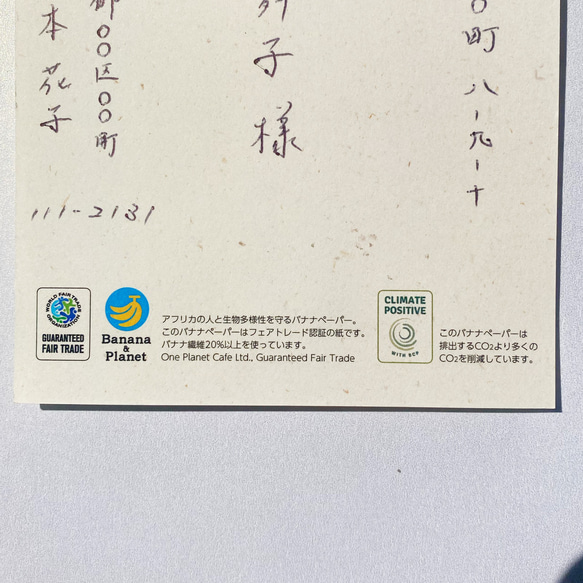 〇町 八-九-十
子 様
都〇〇区〇〇町
本 花子
111-2131
WORLD FAIR TRADE ORGANIZATION
GUARANTEED
FAIR TRADE
Banana
&
Planet
アフリカの人と生物多様性を守るバナナペーパー。
このバナナペーパーはフェアトレード認証の紙です。
バナナ繊維20%以上を使っています。
One Planet Cafe Ltd., Guaranteed Fair Trade
CLIMATE
POSITIVE
WITH BCP
このバナナペーパーは
排出するCO₂より多くの
CO₂を削減しています。